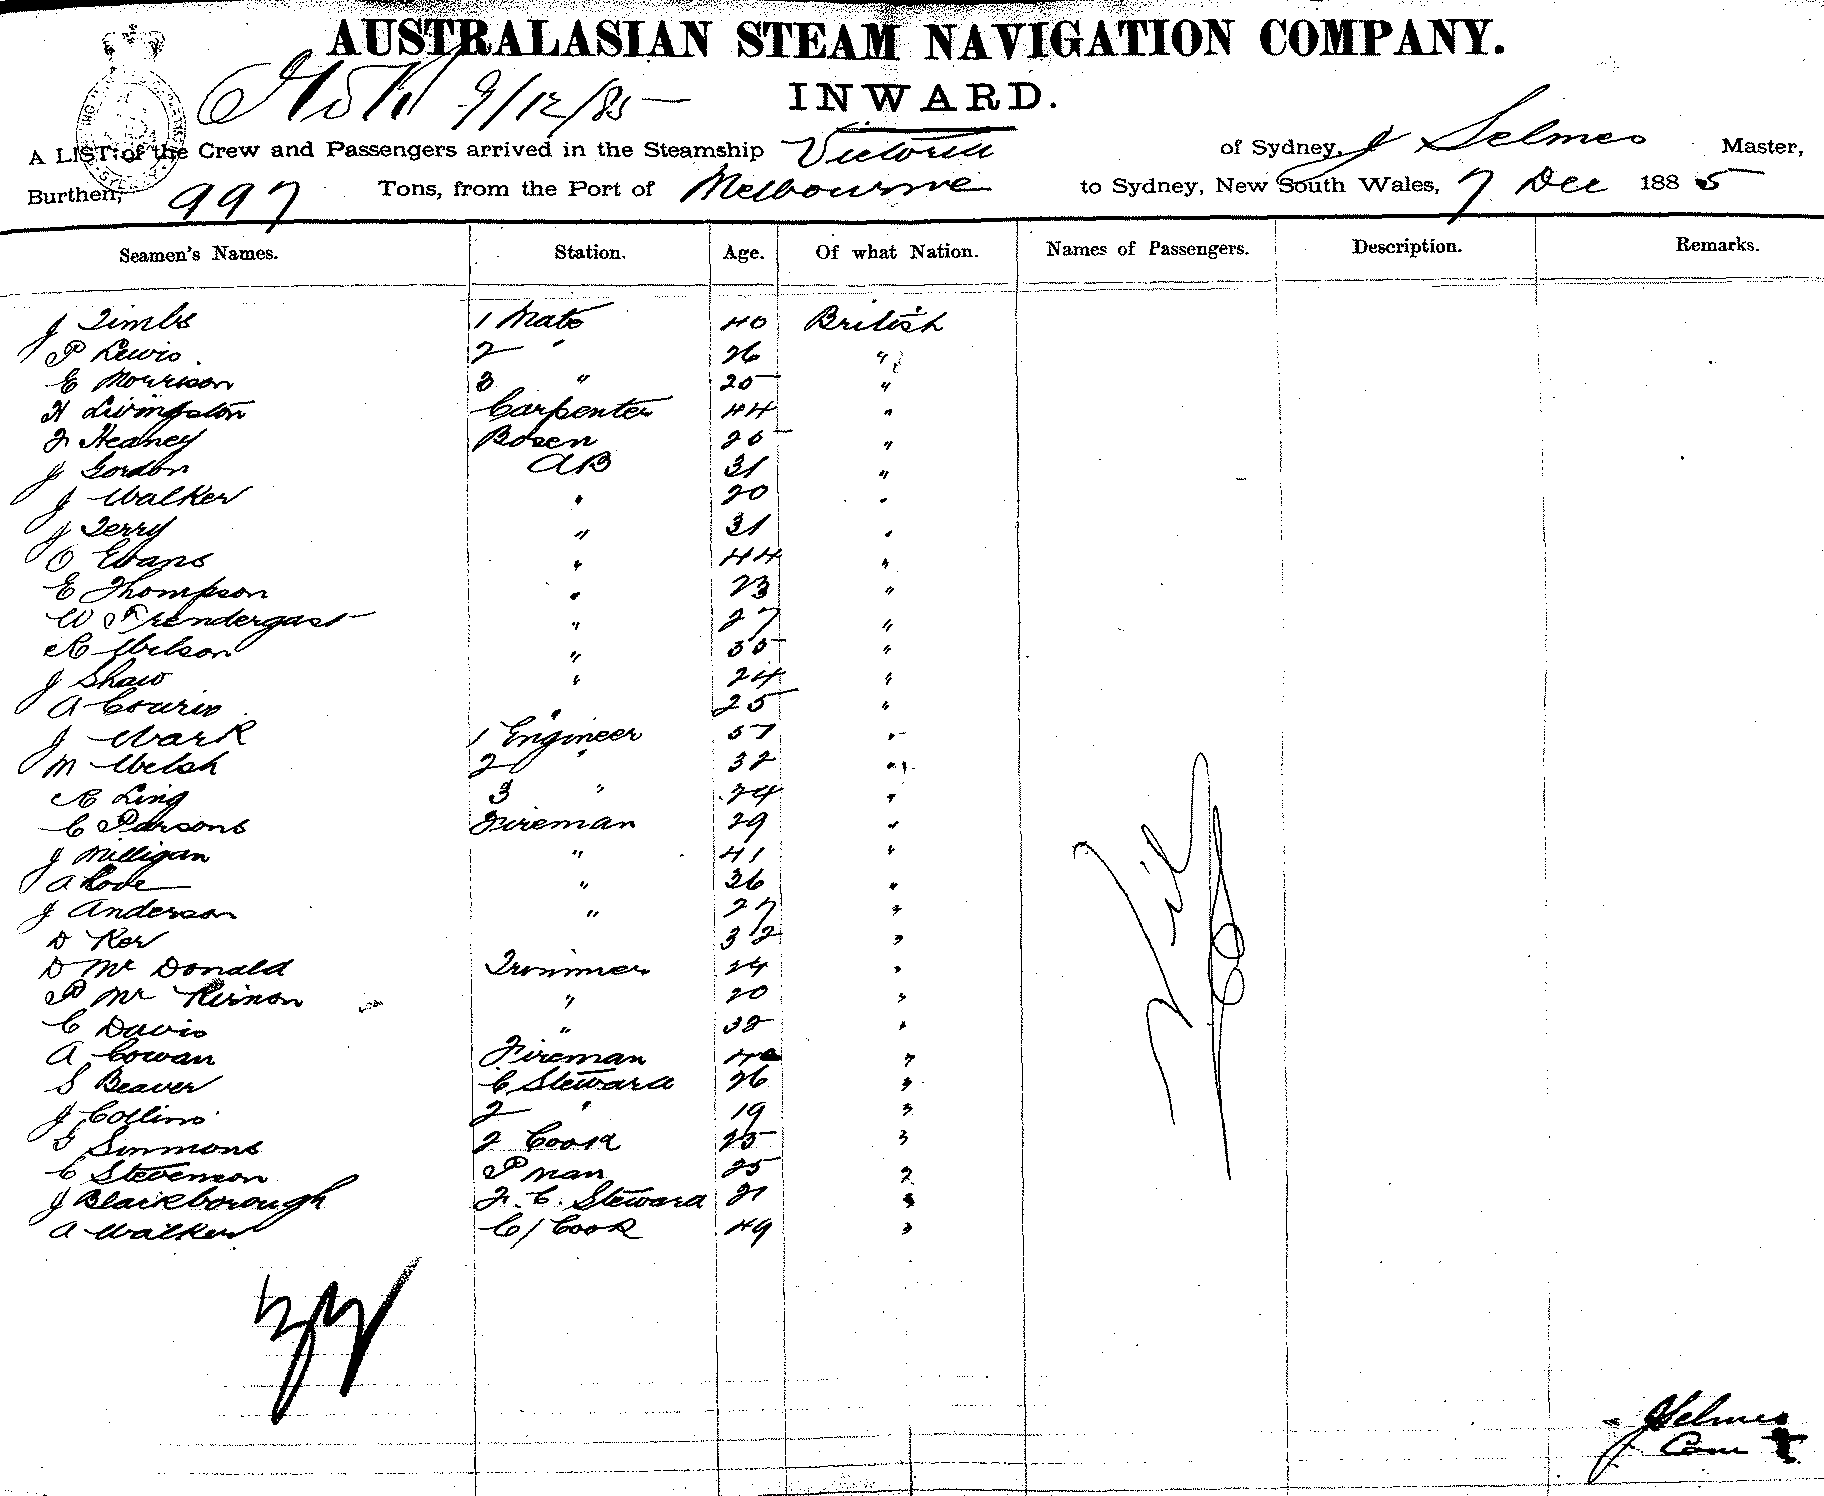 AUSTRALASIAN STEAM NAVIGATION COMPANY.
9/12/85
INWARD.
A LIST of the Crew and Passengers arrived in the Steamship Victoria of Sydney, J Selmes Master,
Burthen, 997 Tons, from the Port of Melbourne to Sydney, New South Wales, 7 Dec 1885
Seamen's Names. Station. Age. Of what Nation. Names of Passengers. Description. Remarks.
J Timbs 1 Mate 40 British
P Lewis 2 " 26 "
E Morrison 3 " 25 "
H Livingston Carpenter 44 "
J Heaney Bosen 25 "
J Gordon AB 31 "
J Walker " 20 "
J Terry " 31 "
O Evans " 44 "
E Thompson " 23 "
W Prendergast " 27 "
R Wilson " 35 "
J Shaw " 24 "
A Cowrie " 25 "
J Wark 1 Engineer 57 "
M Welsh 2 " 32 "
R Ling 3 " 24 "
C Parsons Fireman 29 "
J Milligan " 41 "
A Love " 36 "
J Anderson " 27 "
D Ker 32 "
D Mc Donald Trimmer 24 "
P Mc Kirnon " 20 "
C Davis " 32 "
A Cowan Fireman "
S Beaver C Steward 26 "
J Collins 2 " 19 "
Simmons 2 Cook 25 "
C Stevenson P man 25 "
J Blackborough F. C. Steward 21 "
A Walker C/Cook 49 "
Nil
J Selmes